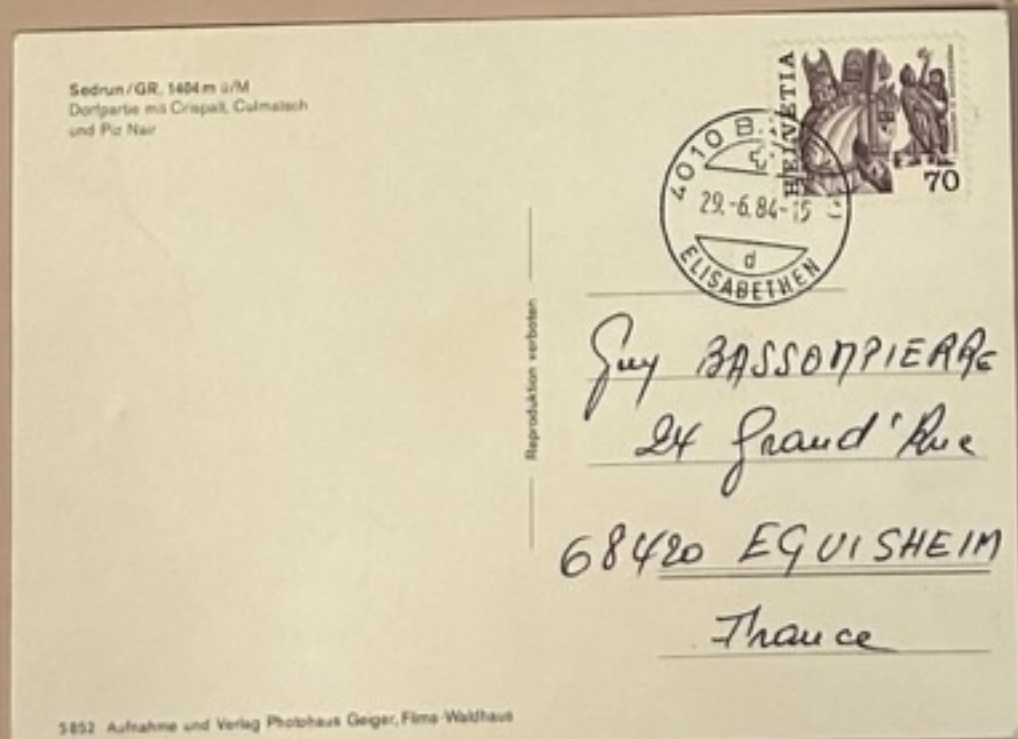 Sedrun/GR, 1404 m ü/M
Dorfpartie mit Crispalt, Culmatsch
und Piz Nair
HELVETIA
70
4010 B
29.-6.84-15
d
ELISABETHEN
Reproduktion verboten
Guy BASSOMPIERRE
24 Grand'Rue
68420 EGUISHEIM
France
5852 Aufnahme und Verlag Photohaus Geiger, Flims-Waldhaus